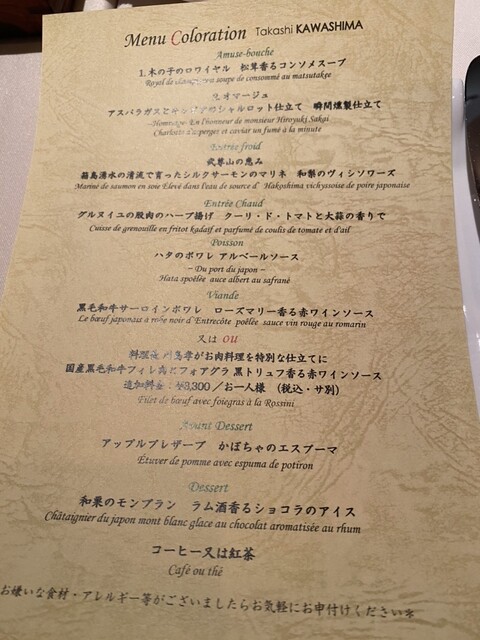 Menu Coloration Takashi KAWASHIMA
Amuse-bouche
1.木の子のロワイヤル 松茸香るコンソメスープ
Royal de soupe de consommé au matsutakge
オマージュ
アスパラガスと のシャルロット仕立て 瞬間燻製仕立て
~Hommage~ En l'honneur de monsieur Hiroyuki Sakai
Charlotte d'asperges et caviar un fumé à la minute
Entrée froid
武尊山の恵み
箱島湧水の清流で育ったシルクサーモンのマリネ 和梨のヴィシソワーズ
Mariné de saumon en soie Élevé dans l'eau de source d' Hakoshima vichyssoise de poire japonaise
Entrée Chaud
グルヌイユの股肉のハーブ揚げ クーリ・ド・トマトと大蒜の香りで
Cuisse de grenouille en fritot kadaif et parfumé de coulis de tomate et d'ail
Poisson
ハタのポワレ アルベールソース
~ Du port du japon ~
Hata spoêlée auce albert au safrané
Viande
黒毛和牛サーロインポワレ ローズマリー香る赤ワインソース
Le bœuf japonais à robe noir d'Entrecôte poêlée sauce vin rouge au romarin
又は ou
料理長 川島孝がお肉料理を特別な仕立てに
国産黒毛和牛フィレ肉とフォアグラ 黒トリュフ香る赤ワインソース
追加料金:¥3,300/お一人様 (税込・サ別)
Filet de bœuf avec foiegras à la Rossini
Avant Dessert
アップルプレザーブ かぼちゃのエスプーマ
Étuver de pomme avec espuma de potiron
Dessert
和栗のモンブラン ラム酒香るショコラのアイス
Châtaignier du japon mont blanc glace au chocolat aromatisée au rhum
コーヒー又は紅茶
Café ou thé
お嫌いな食材・アレルギー等がございましたらお気軽にお申付けください※